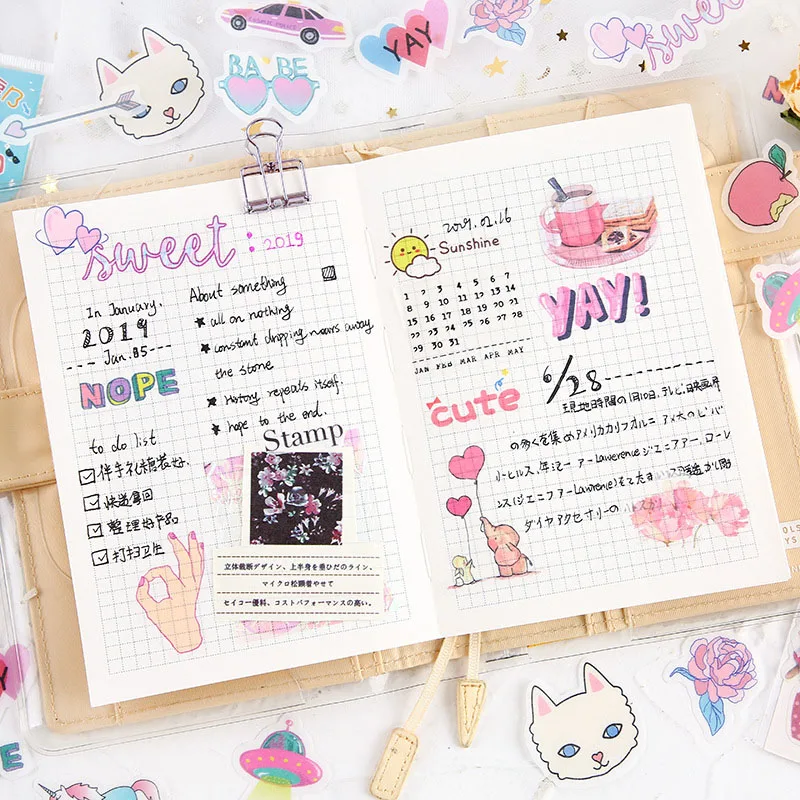 YAY
sweet
BABE
sweet : 2019
In January.
2019
Jan. 05
NOPE
to do list
伴手礼糖装好.
快递拿回
整理好产品
打扫卫生
About something
all on nothing
constant dripping wears away
the stone
History repeats itself.
hope to the end.
Stamp
立体裁断デザイン、上半身を垂ひだのライン、
マイクロ松顕着やせて
セイコー優料、コストパフォーマンスの高い。
2019.02.16
Sunshine
1 2 3 4 5 6 7
8 9 10 11 12 13 14
15 16 17 18 19 20 21
22 23 24 25 26 27 28
29 30 31
JAN FEB MAR APR MAY
YAY!
cute
6/28
現地時間の1月10日、テレビ、映画界
の多くを集めアメリカカリフォルニ
アー Lawerence ジェニファー、ローレ
ンス(ジェニファー Lawrence)
ダイヤアクセサリーの
YAY